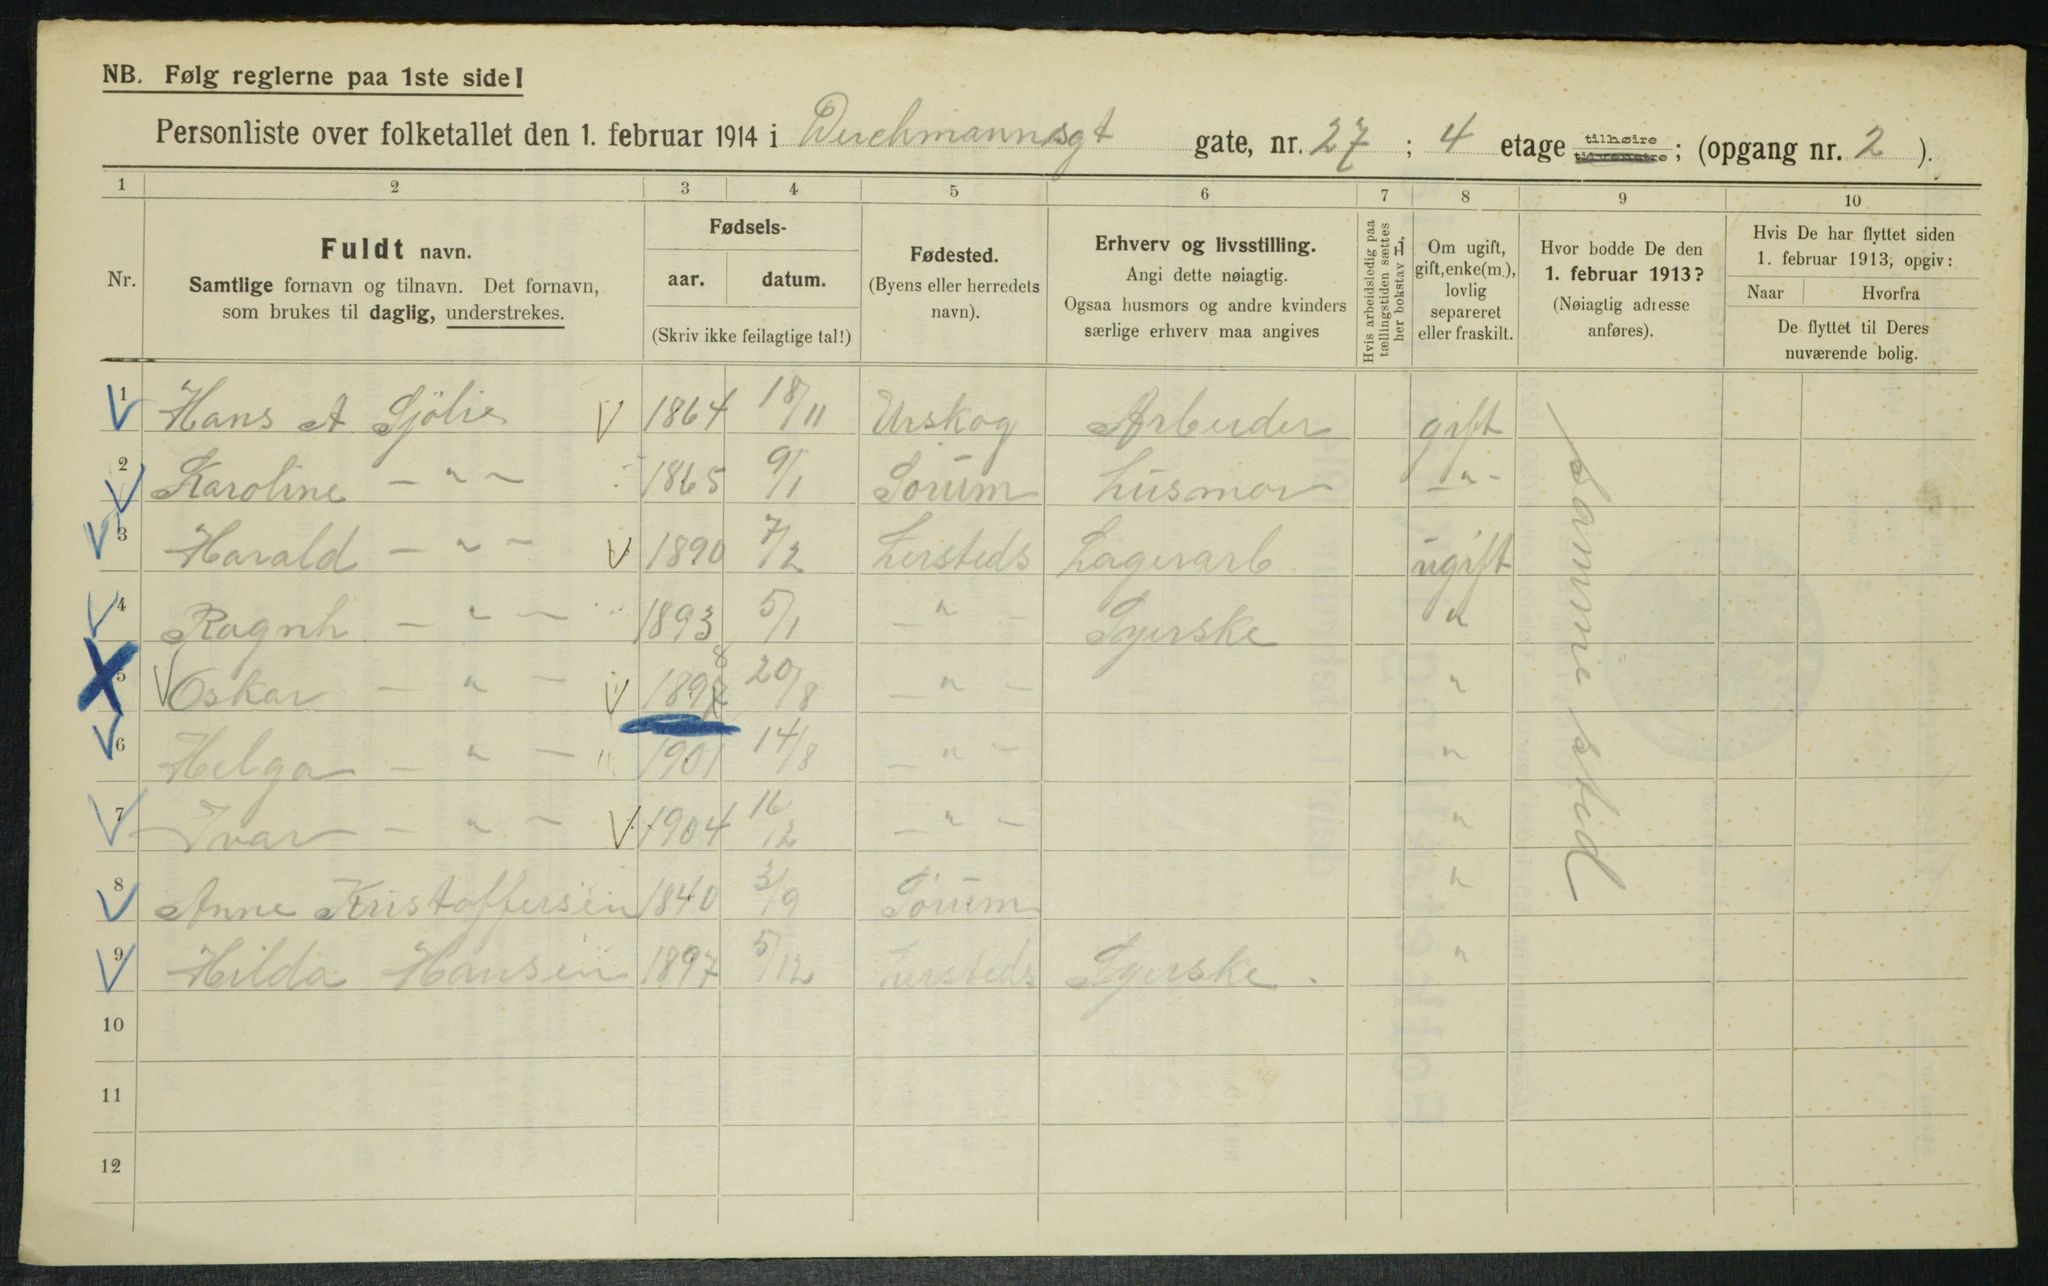 NB. Følg reglerne paa 1ste side!
Personliste over folketallet den 1. februar 1914 i Deichmannsgt gate, nr. 27 ; 4 etage tilhøire tilvenstre ; (opgang nr. 2 ).
1 2 3 4 5 6 7 8 9 10
Nr.
Fuldt navn.
Samtlige fornavn og tilnavn. Det fornavn,
som brukes til daglig, understrekes.
Fødsels-
aar. datum.
(Skriv ikke feilagtige tal!)
Fødested.
(Byens eller herredets
navn).
Erhverv og livsstilling.
Angi dette nøiagtig.
Ogsaa husmors og andre kvinders
særlige erhverv maa angives
Hvis arbeidsledig paa
tællingstiden sættes
her bokstav L.
Om ugift,
gift, enke(m.),
lovlig
separeret
eller fraskilt.
Hvor bodde De den
1. februar 1913?
(Nøiagtig adresse
anføres).
Hvis De har flyttet siden
1. februar 1913, opgiv:
Naar Hvorfra
De flyttet til Deres
nuværende bolig.
1 Hans A Sjölie V 1864 18/11 Urskog Arbeider gift
2 Karoline — " — 1865 9/1 Sörum husmor — " -
3 Harald — " — V 1890 7/2 hersteds Lagerarb ugift
4 Ragnh — " — 1893 5/1 — " — Syerske "
5 V Oskar — " — V 1898 20/8 — " — "
6 Helga — " — " 1901 14/8 — " — "
7 Ivar — " — V 1904 16/2 — " — "
8 Anne Kristoffersen 1840 3/9 Sörum "
9 Hilda Hansen 1897 5/12 hersteds Syerske . "
Samme sted
10
11
12